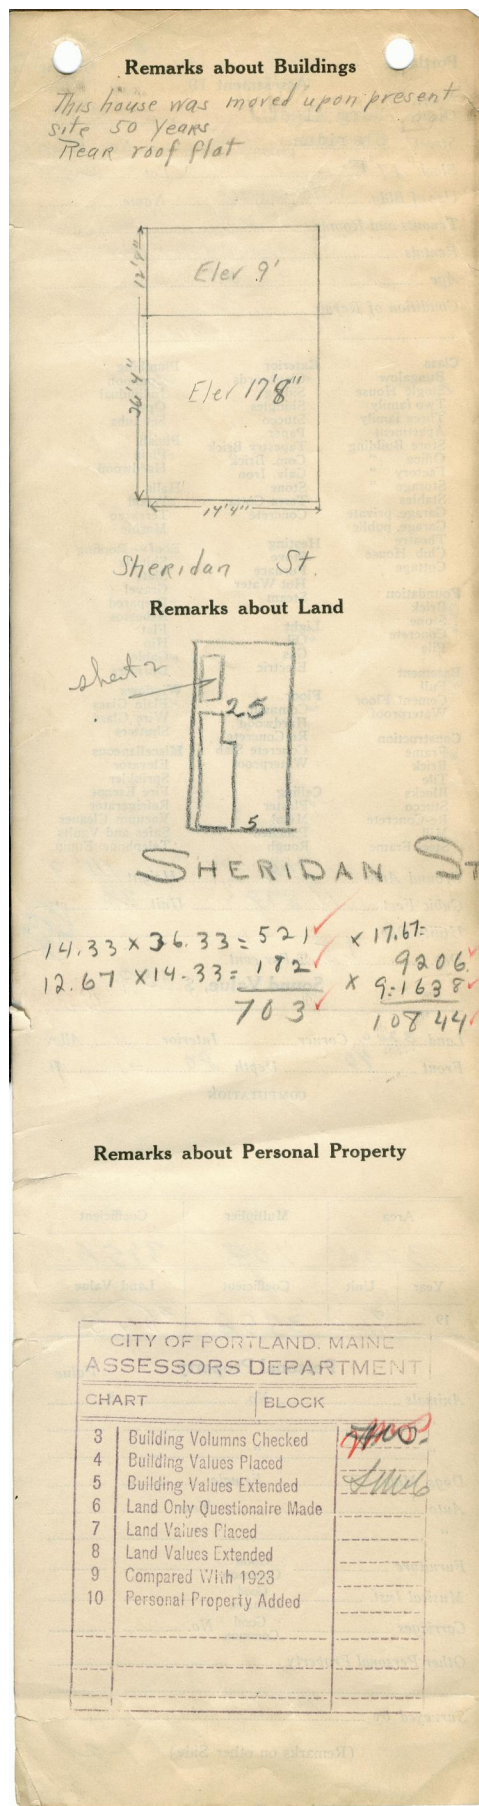 Remarks about Buildings
This house was moved upon present
site 50 Years
Rear roof flat
12'9"
Elev 9'
26'4"
Elev 17'8"
14'4"
Sheridan St.
Remarks about Land
sheet 2
25
5
SHERIDAN ST
14.33 x 36.33 = 521 x 17.67=
9206
12.67 x 14.33 = 182 x 9=1638
703 10844
Remarks about Personal Property
CITY OF PORTLAND, MAINE
ASSESSORS DEPARTMENT
CHART BLOCK
3 Building Volumns Checked
4 Building Values Placed
5 Building Values Extended
6 Land Only Questionaire Made
7 Land Values Placed
8 Land Values Extended
9 Compared With 1923
10 Personal Property Added